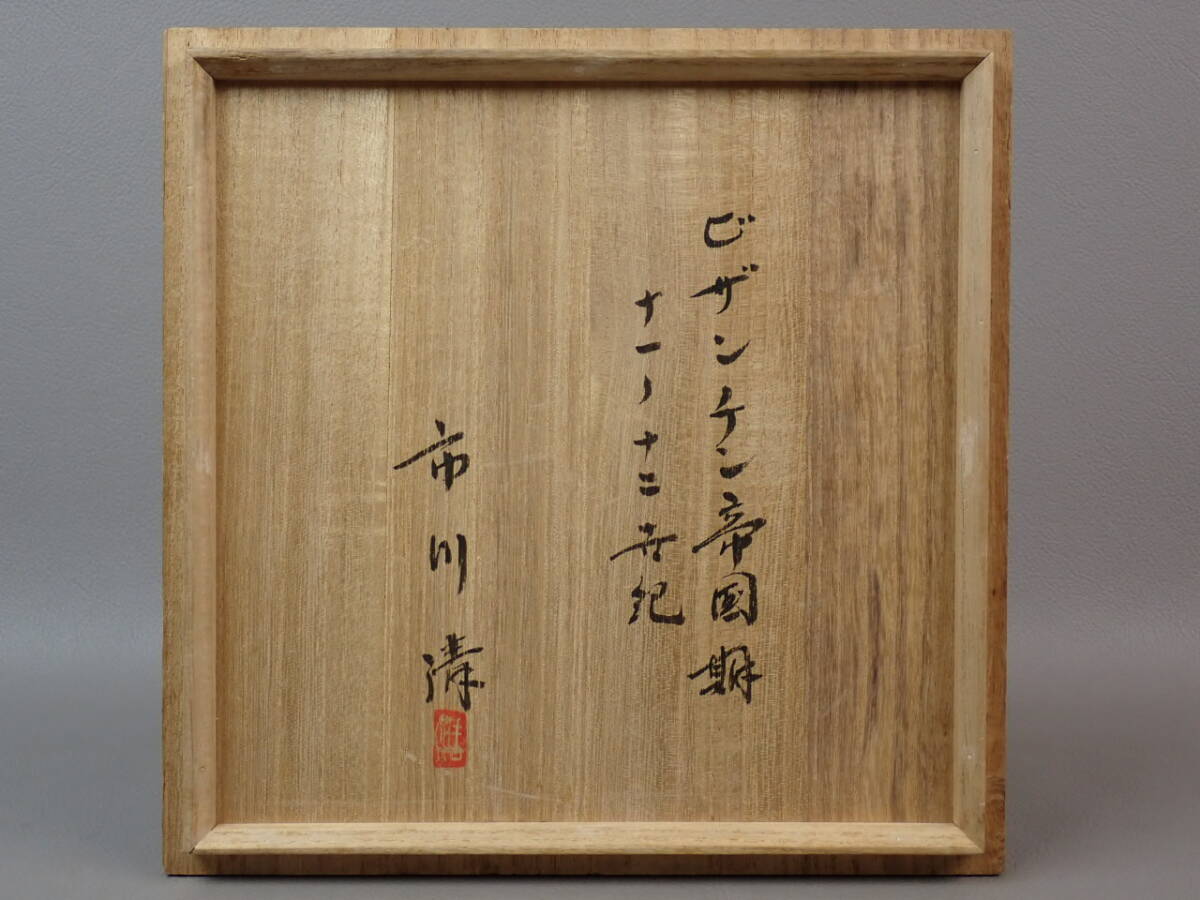 ビザンチン帝国期
十一〜十二世紀
市川清